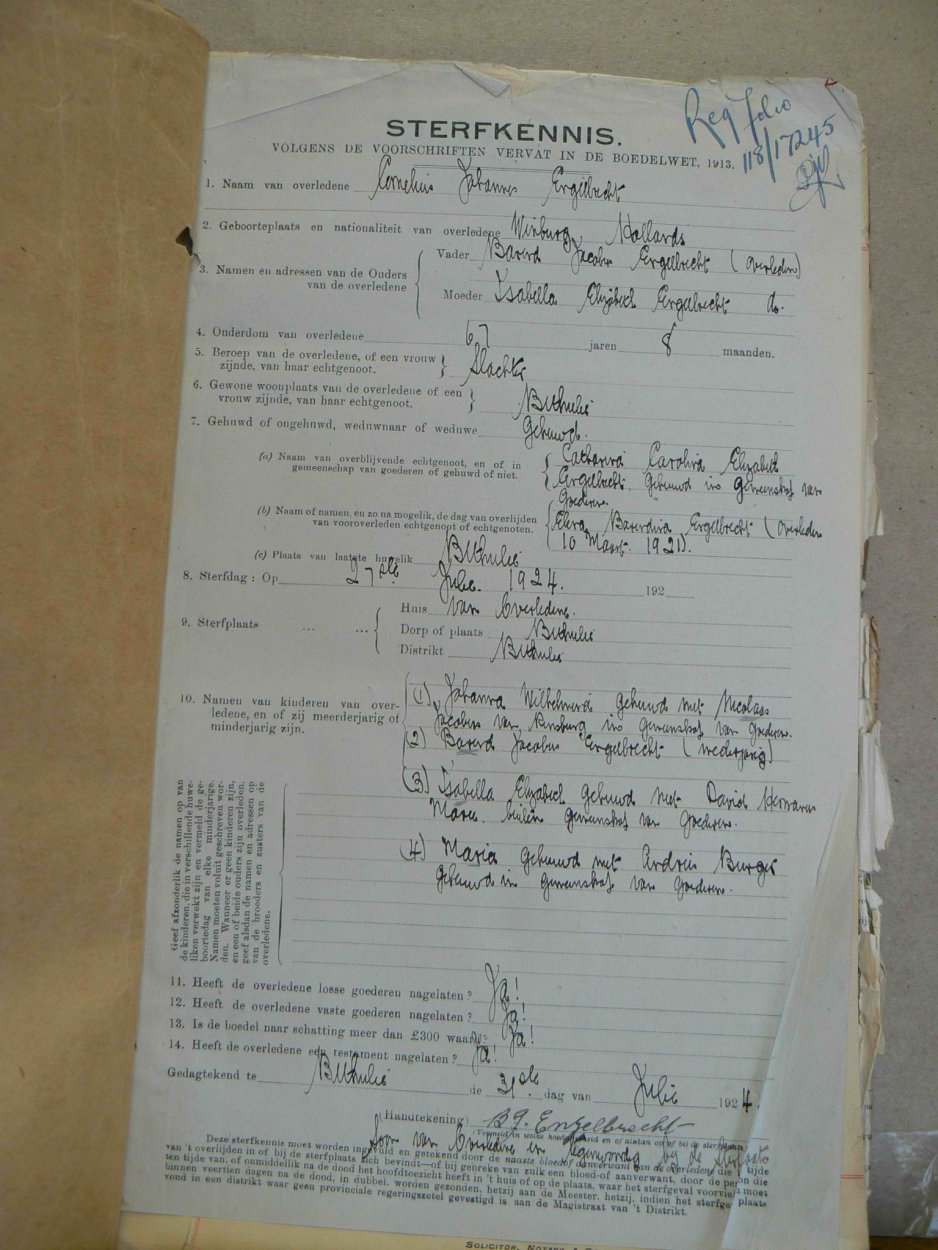 Reg folio
118/17245
STERFKENNIS.
VOLGENS DE VOORSCHRIFTEN VERVAT IN DE BOEDELWET, 1913.
1. Naam van overledene Cornelius Johannes Engelbrecht
2. Geboorteplaats en nationaliteit van overledene Winburg, Hollands
3. Namen en adressen van de Ouders van de overledene
Vader Barend Jacobus Engelbrecht (overleden)
Moeder Isabella Elizabeth Engelbrecht do.
4. Ouderdom van overledene 67 jaren 8 maanden.
5. Beroep van de overledene, of een vrouw
zijnde, van haar echtgenoot. Slachter
6. Gewone woonplaats van de overledene of een
vrouw zijnde, van haar echtgenoot. Bethulie
7. Gehuwd of ongehuwd, weduwnaar of weduwe Gehuwd.
(a) Naam van overblijvende echtgenoot, en of in
gemeenschap van goederen of gehuwd of niet.
Catharina Carolina Elizabeth
Engelbrecht. Gehuwd in gemeenskaf van
Goederen.
(b) Naam of namen, en zo na mogelik, de dag van overlijden
van vooroverleden echtgenoot of echtgenoten.
Elena Barendina Engelbrecht (overleden
10 Maart 1921).
(c) Plaats van laatste huwelik Bethulie
8. Sterfdag : Op 27ste Julie 1924. 192
9. Sterfplaats ... ...
Huis van Overledene.
Dorp of plaats Bethulie
Distrikt Bethulie
10. Namen van kinderen van over-
ledene, en of zij meerderjarig of
minderjarig zijn.
(1) Johanna Wilhelmina Gehuwd met Nicolaas
Jacobus van Rensburg in gemeenskaf van Goederen.
(2) Barend Jacobus Engelbrecht (mederjarig)
(3) Isabella Elizabeth Gehuwd met David Hermanus
Maree. buiten gemeenskaf van Goederen.
(4) Maria Gehuwd met Andries Burger
Gehuwd in gemeenskaf van Goederen.
Geef afzonderlik de namen op van
de kinderen, die in verschillende huwe-
liken verwekt zijn en vermeld de ge-
boortedag van elke minderjarige.
Namen moeten voluit geschreven wor-
den. Wanneer er geen kinderen zijn,
en een of beide ouders zijn overleden,
geef alsdan de namen en adressen op
van de broeders en zusters van de
overledene.
11. Heeft de overledene losse goederen nagelaten ? Ja!
12. Heeft de overledene vaste goederen nagelaten ? Ja!
13. Is de boedel naar schatting meer dan £300 waard? Ja!
14. Heeft de overledene een testament nagelaten ? Ja!
Gedagtekend te Bethulie de 31ste dag van Julie 1924.
(Handtekening) B J. Engelbrecht
Soon van Overledene en tegenwoordig bij de
Deze sterfkennis moet worden ingevuld en getekend door de naaste bloed of aanverwant van de overledene die ten tijde
van 't overlijden in of bij de sterfplaats zich bevindt—of bij gebreke van zulk een bloed-of aanverwant, door de persoon die
ten tijde van, of onmiddellik na de dood het hoofdtoezicht heeft in 't huis of op de plaats, waar het sterfgeval voorviel moet
binnen veertien dagen na de dood, in dubbel, worden gezonden, hetzij aan de Meester, hetzij, indien het sterfgeval plaats
vond in een distrikt waar geen provinciale regeringszetel gevestigd is aan de Magistraat van 't Distrikt.
SOLICITOR, NOTARY &